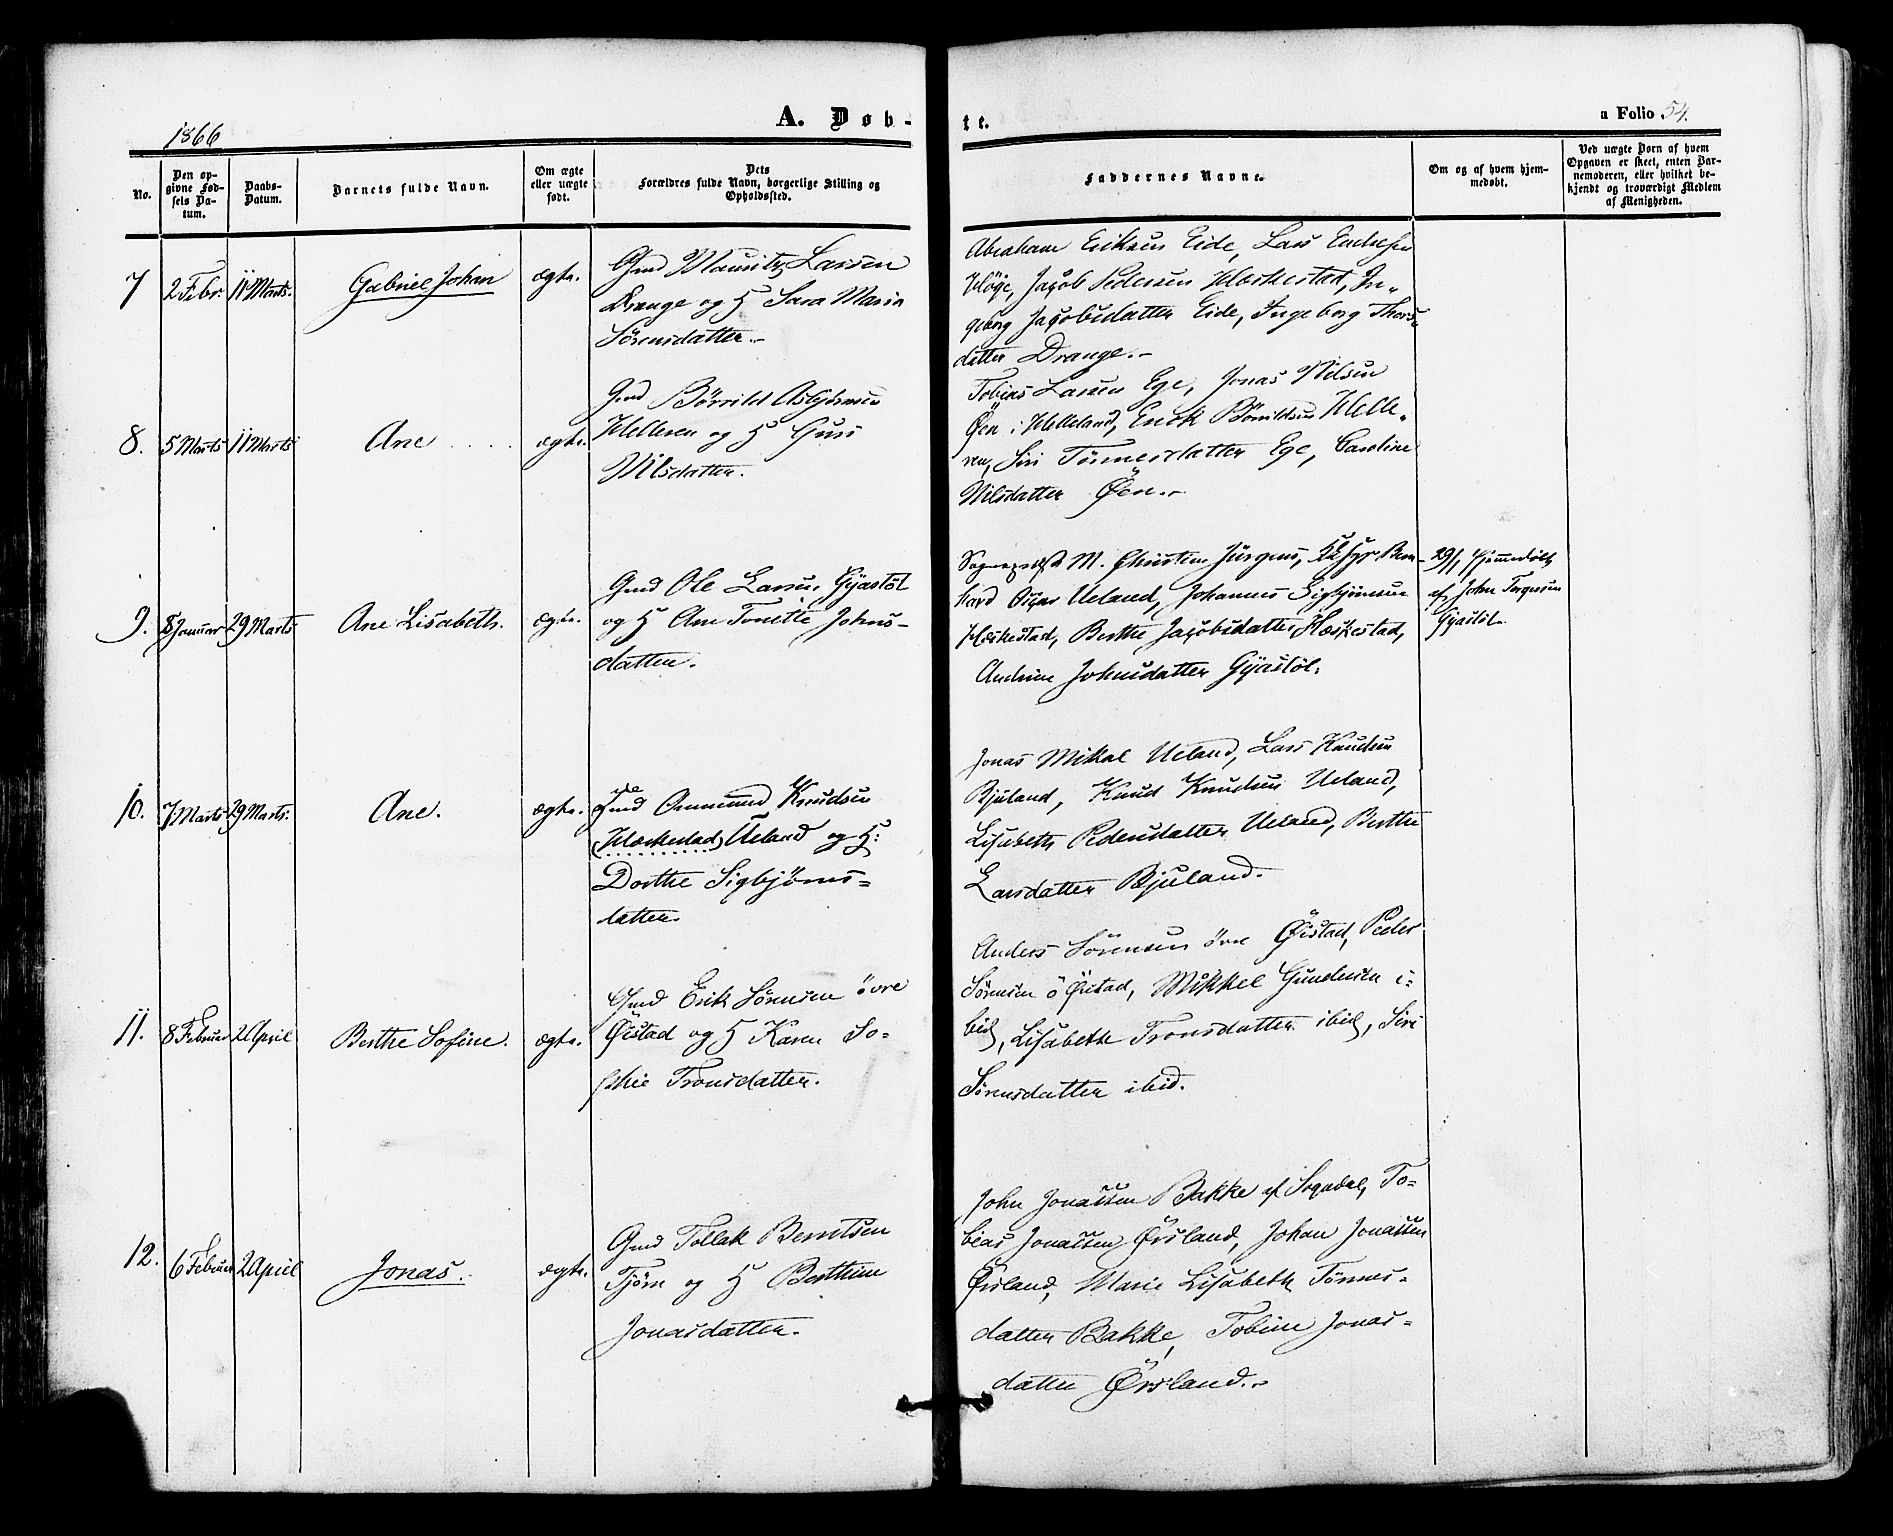 1866
A. Døb-
te.
a Folio 54.
No.
Den op-
givne Fød-
sels Da-
tum.
Daabs-
Datum.
Barnets fulde Navn.
Om ægte
eller uægte
født.
Dets
Forældres fulde Navn, borgerlige Stilling og
Opholdssted.
Faddernes Navne.
Om og af hvem hjem-
medøbt.
Ved uægte Børn af hvem
Opgaven er skeet, enten Bar-
nemoderen, eller hvilket be-
kjendt og troværdigt Medlem
af Menigheden.
7
2 Febr.
11 Marts.
Gabriel Johan
ægte.
Gmd Mauritz Larsen
Drange og H Sara Maria
Sörensdatter.-
Abraham Eriksen Eide, Lars
Höge, Jacob Pedersen Heskestad, In-
geborg Jacobsdatter Eide, Ingeborg Thors-
datter Drange.-
8.
5 Marts
11 Marts
Ane
ægte.
Gmd Börrild Asbjörnsen
Helleren og H Guri
Nilsdatter.
Tobias Larsen Ege, Jonas Nilsen
Øen i Helleland, Erick Börrildsen Helle-
ren, Siri Tönnesdatter Ege, Caroline
Nilsdatter Øen.-
9.
8 Januar
29 Marts
Ane Lisabeth.
ægte.
Gmd Ole Larsen Gyastöl
og H Ane Tonette Johns-
datter.
M. Christen Jürgens, Bern-
hard Oscar Ueland, Johannes Sigbjörnsen
Heskestad, Berthe Jacobsdatter Heskestad,
Andrine Johnsdatter Gyastöl.
29/1 Hjemmedöbt
af John Torgersen
Gyastöl.
10.
7 Marts
29 Marts.
Ane.
ægte.
Gmd Ommund Knudsen
(Heskestad) Ueland og H.
Dorthe Sigbjörns-
datter.
Jonas Mikal Ueland, Lars Knudsen
Bjuland, Knud Knudsen Ueland,
Lisabeth Pedersdatter Ueland, Berthe
Larsdatter Bjuland.
11.
8 Februar
2 April
Berthe Sofine.
ægte.
Gmd Erik Sörensen övre
Øistad og H Karen So-
phie Tronsdatter.
Anders Sörensen övre Øistad, Peder
Sörensen ö Øistad, Mikkel Gundersen i-
bid, Lisabeth Tronsdatter ibid, Siri
Sörensdatter ibid.
12.
6 Februar
2 April
Jonas.
ægte.
Gmd Tollak Berntsen
Tjörn og H Berthine
Jonasdatter.
John Jonassen Bakke af Sogndal, To-
bias Jonassen Örsland, Johan Jonassen
Örsland, Marie Lisabeth Tönnes-
datter Bakke, Tobine Jonas-
datter Örsland.-